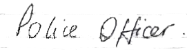 Police Officer.